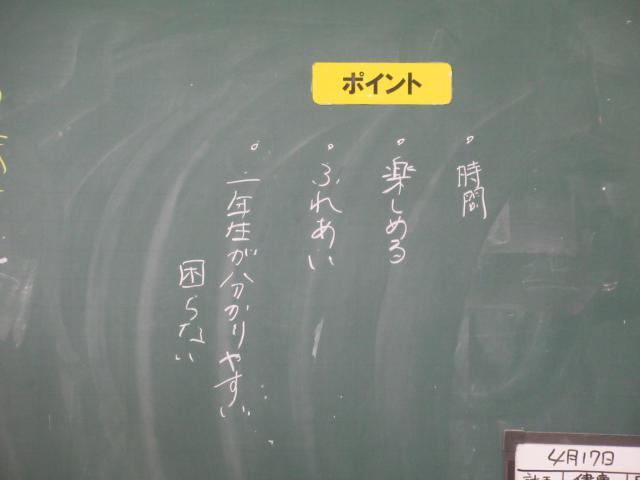 ポイント
。時間
。楽しめる
。ふれあい
。一年生が分かりやすい
困らない
4月17日